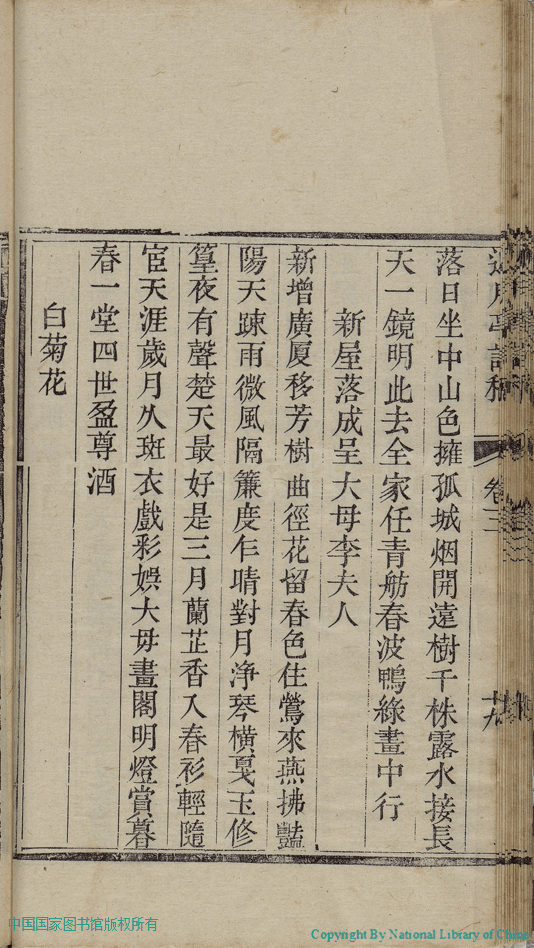 月亭詩稿 卷三
落日坐中山色擁孤城烟開遠樹千株露水接長
天一鏡明此去全家任青舫春波鴨綠畫中行
新屋落成呈大母李夫人
新增廣厦移芳樹曲徑花留春色住鶯來燕拂豔
陽天踈雨微風隔簾度乍晴對月净琴橫戛玉修
篁夜有聲楚天最好是三月蘭芷香入春衫輕隨
宦天涯歲月久斑衣戲彩娛大毋畫閣明燈賞暮
春一堂四世盈尊酒
白菊花
中国国家图书馆版权所有
Copyright By National Library of China